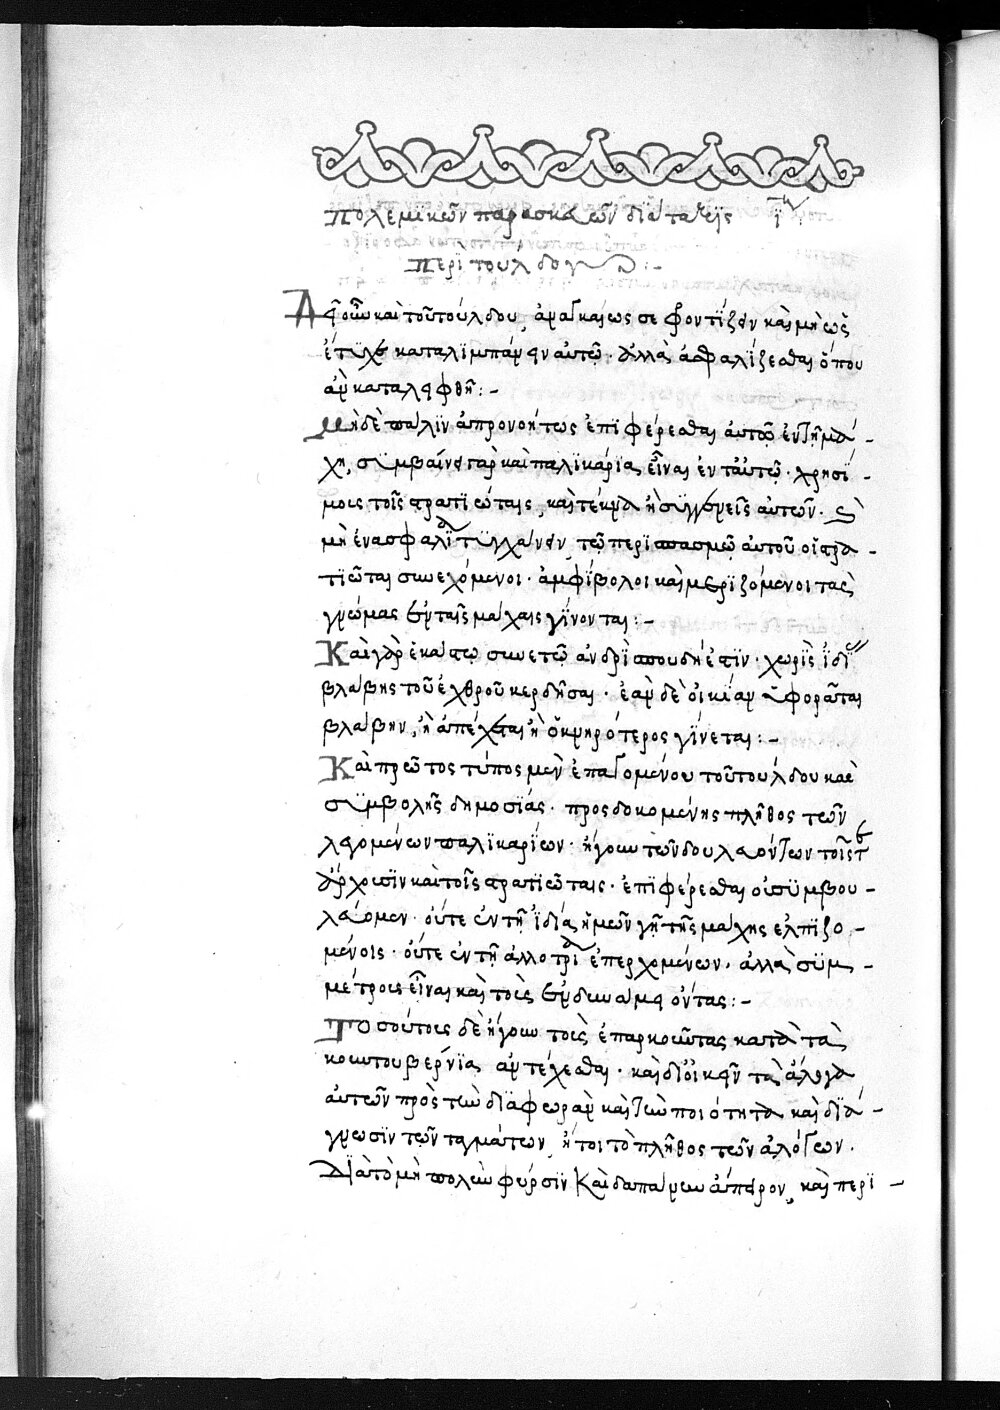 Πολεμικῶν παρασκευῶν διάταξις ι
Περὶ τούλδου :-
Δέον καὶ τοῦ τούλδου ἀναγκαίως σε φροντίζειν καὶ μὴ ὡς
ἔτυχε καταλιμπάνειν αὐτῷ· ἀλλὰ ἀσφαλίζεσθαι ὅπου
ἂν καταλειφθῇ :-
Μηδὲ πάλιν ἀπρονοήτως ἐπιφέρεσθαι αὐτῷ ἐν τῇ μά -
χῃ, συμβαίνει γὰρ καὶ παλικάρια εἶναι ἐν τἀυτῷ· χρησί -
μοις τοῖς στρατιώταις, καὶ τέκνα ἢ συγγενεῖς αὐτῶν·
μὴ ἐν ἀσφαλεία τυγχάνειν, τῷ περισπασμῷ αὐτοῦ οἱ στρα -
τιῶται συνεχόμενοι· ἀμφίβολοι καὶ μεριζόμενοι τὰς
γνώμας ἐν ταῖς μάχαις γίνονται :-
Καὶ γὰρ ἑκάστῳ συνετῷ ἀνδρὶ σπουδή ἐστιν· χωρὶς ἰδί
βλάβης τοῦ ἐχθροῦ κερδῆσαι· ἐὰν δὲ οἰκείαν ὑφορᾶται
βλάβην, ἢ ἀπέχεται ἢ ὀκνηρότερος γίνεται :-
Καὶ πρῶτος τύπος μὲν ἐπαγομένου τοῦ τούλδου καὶ
συμβολῆς δημοσίας· προσδοκομένης πλῆθος τῶν
λεγομένων παλικαρίων· ἤγουν τῶν δουλευόντων τοῖς τε
ἄρχουσιν καὶ τοῖς στρατιώταις· ἐπιφέρεσθαι οὐ συμβου -
λεύομεν· οὔτε ἐν τῇ ἰδίᾳ ἡμῶν γῇ τῆς μάχης ἐλπιζο -
μένοις· οὔτε ἐν τῇ ἀλλοτρία ἐπερχομένων· ἀλλὰ συμ -
μέτροις εἶναι καὶ τοὺς ἐν δυνάμει ὄντας :-
Τοσούτοις δὲ ἤγουν τοὺς ἐπαρκοῦντας κατὰ τὰ
κουντουβερνία ἀντέχεσθαι· καὶ διοικεῖν τὰ ἄλογα
αὐτῶν πρὸς τὴν διαφωρὰν καὶ τὴν ποιότητα καὶ διά -
γνωσιν τῶν ταγμάτων, ἤτοι τὸ πλῆθος τῶν ἀλόγων·
Διὰ τὸ μὴ πολλὺν φύρσιν καὶ δαπάνην ἄπειρον, καὶ περι -